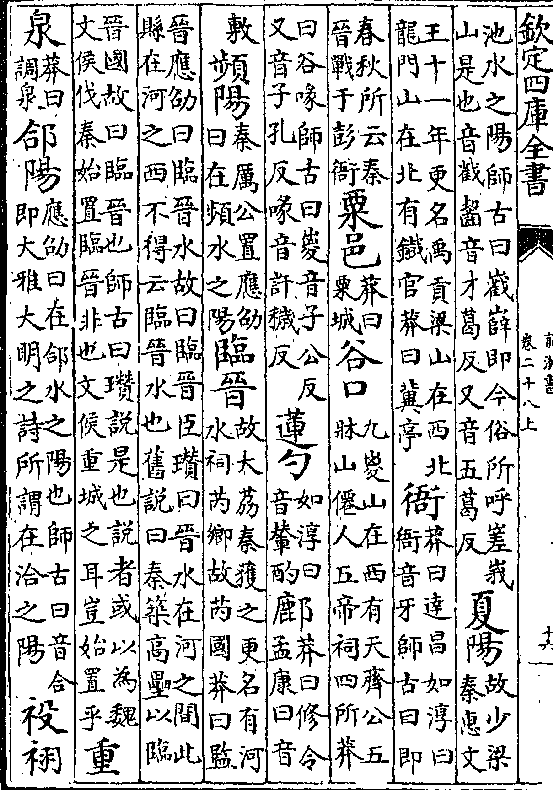 欽定四庫全書
前漢書
卷二十八上
十六
池水之陽師古曰嶻嶭即今俗所呼嵳峩山是也音戳齧音才葛反又音五葛反夏陽故少梁秦惠文
王十一年更名禹貢梁山在西北龍門山在北有鐵官莽曰冀亭衙莽曰達昌如淳曰衙音牙師古曰即
春秋所云秦晉戰于彭衙粟邑莽曰粟城谷口九嵏山在西有天齊公五牀山僊人五帝祠四所莽
曰谷喙師古曰嵏音子公反又音子孔反喙音許穢反蓮勺如淳曰音輦酌鄜莽曰修令孟康曰音
敷頻陽秦厲公置應劭曰在頻水之陽臨晉故大荔秦獲之更名有河水祠芮鄉故芮國莽曰監
晉應劭曰臨晉水故曰臨晉臣瓚曰晉水在河之間此縣在河之西不得云臨晉水也舊說曰秦築高壘以臨
晉國故曰臨晉也師古曰瓚說是也說者或以為魏文侯伐秦始置臨晉非也文侯重城之耳豈始置乎重
泉莽曰調泉郃陽應劭曰在郃水之陽也師古曰音合即大雅大明之詩所謂在洽之陽祋祤